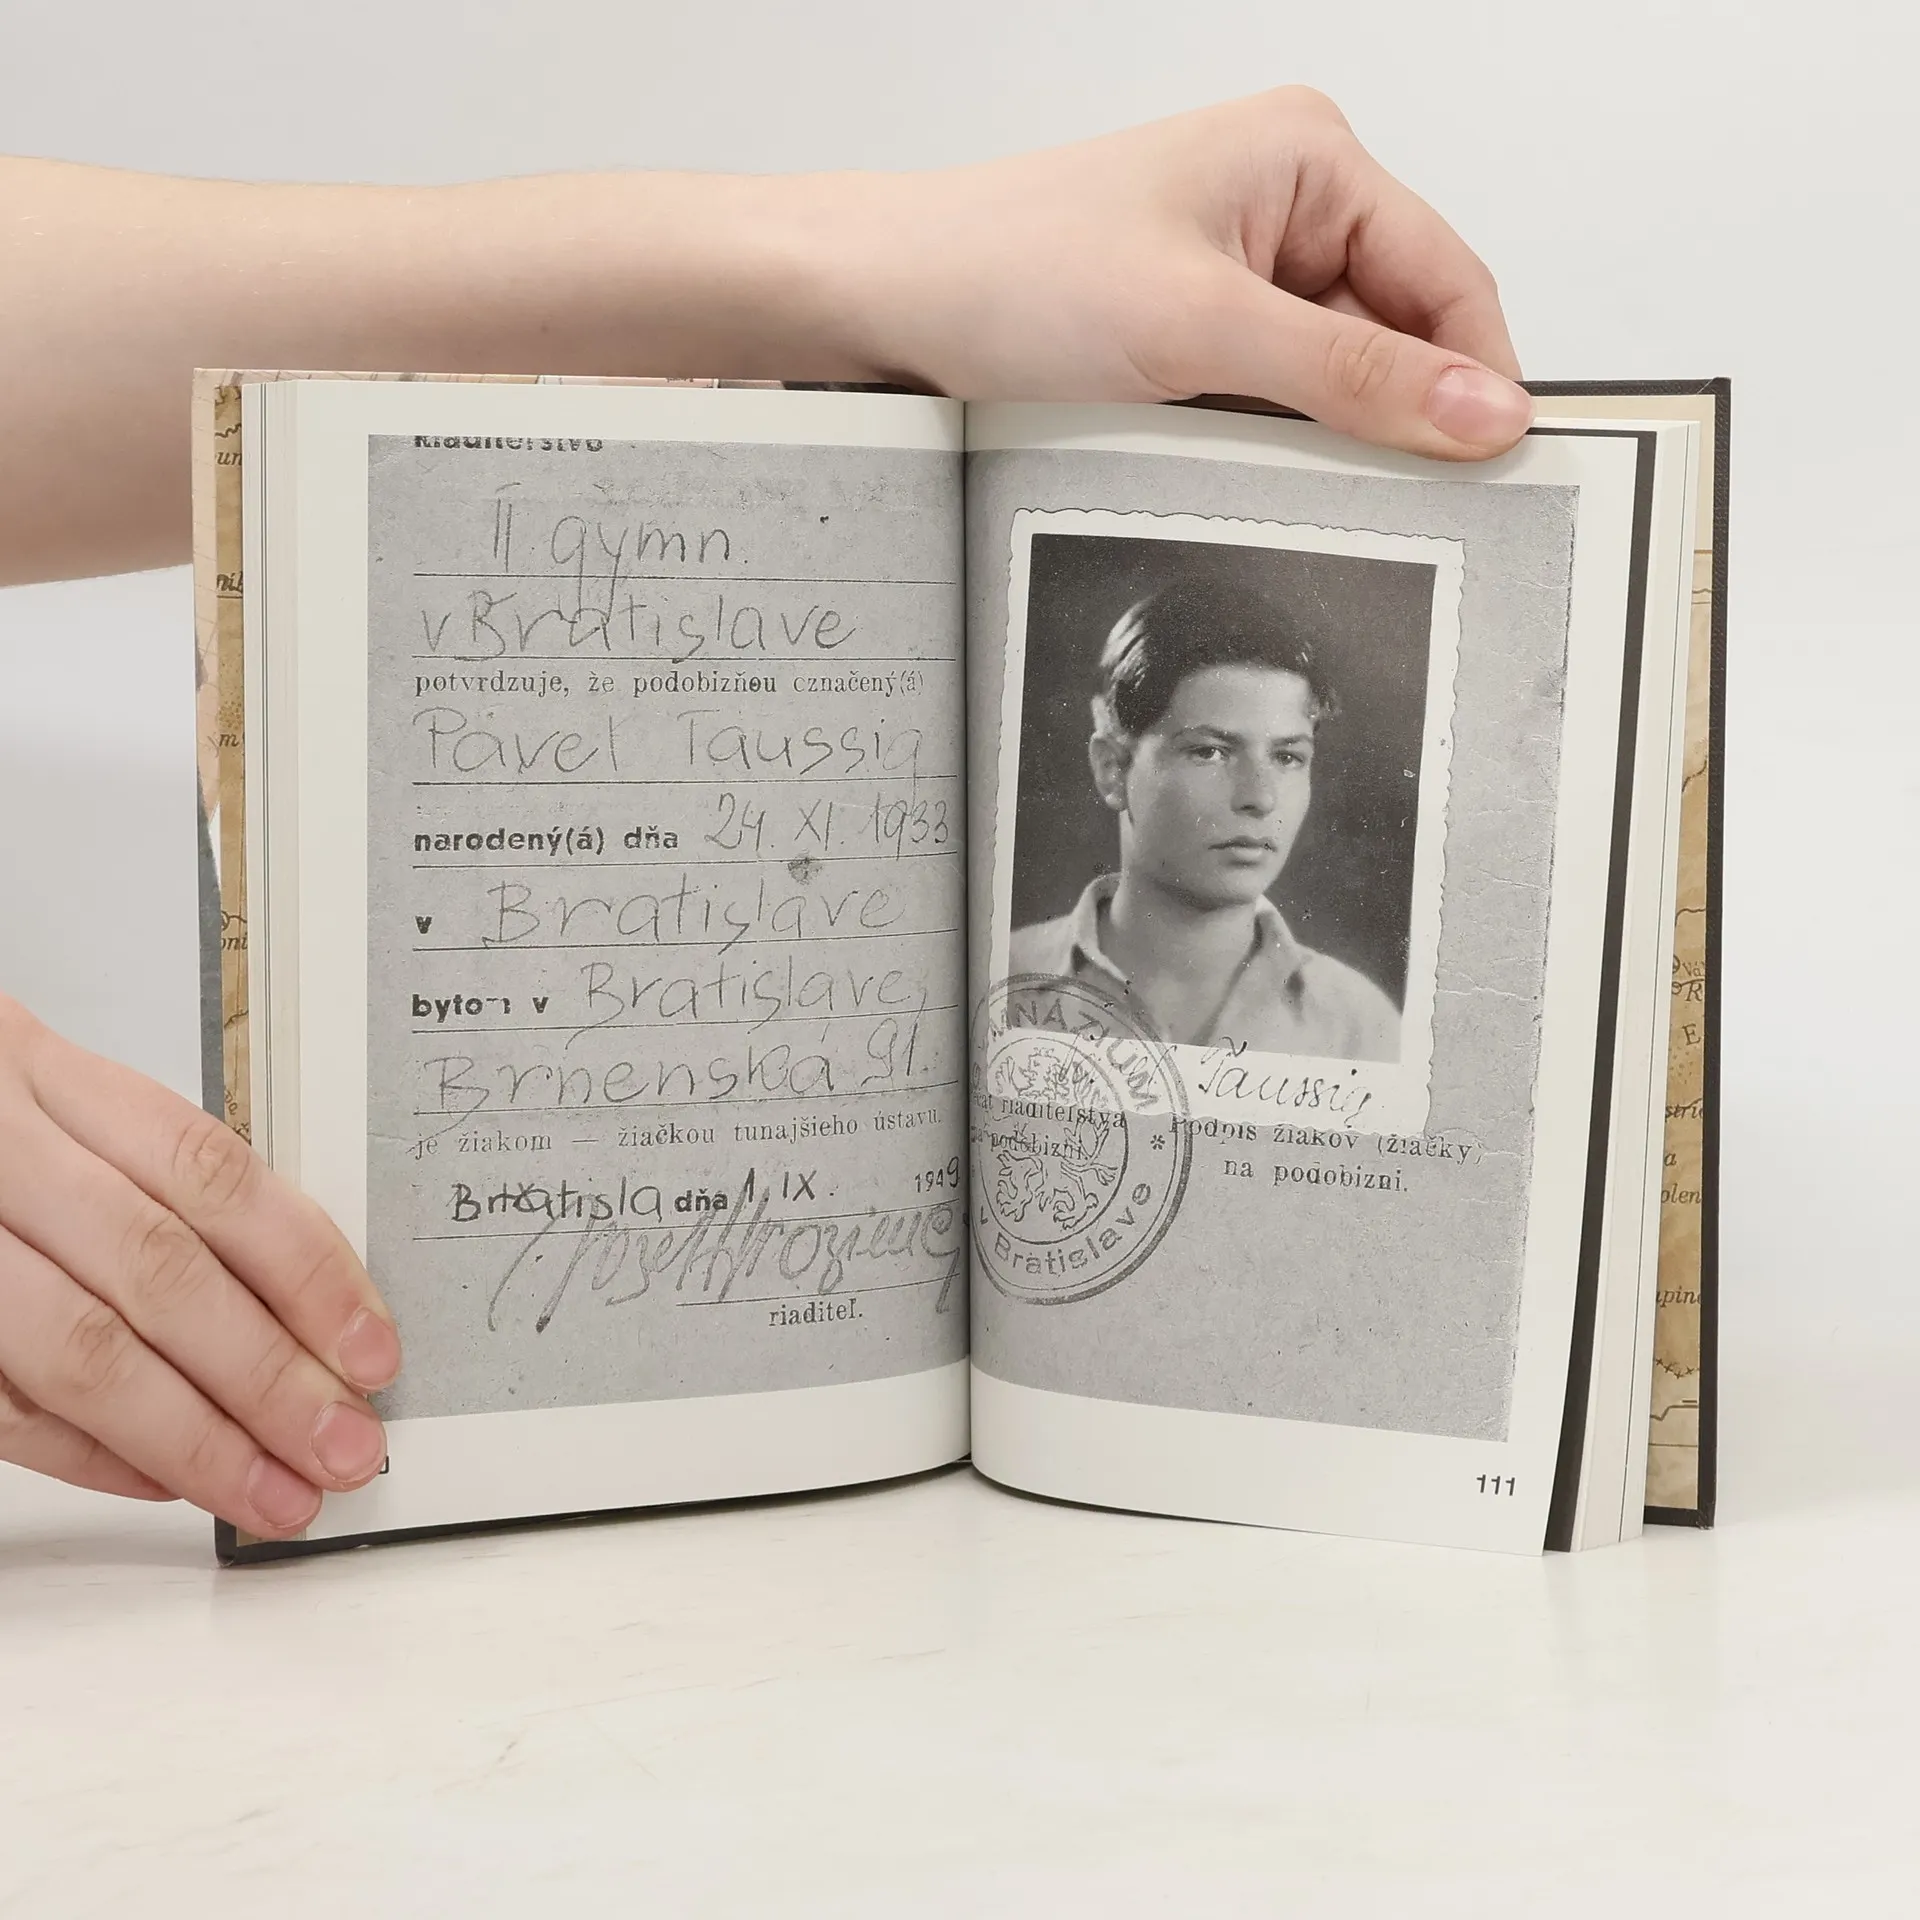 Riaditeľstvo
II. gymn.
v Bratislave
potvrdzuje, že podobizňou označený(á)
Pavel Taussig
narodený(á) dňa 24. XI. 1933
v Bratislave
bytom v Bratislave,
Brnenská 91.
je žiakom — žiačkou tunajšieho ústavu.
Bratisla dňa 1. IX. 1949
riaditeľ.
Taussig
GYMNÁZIUM
riaditeľstva
podobizni
Bratislave
Podpis žiakov (žiačky)
na podobizni.
111